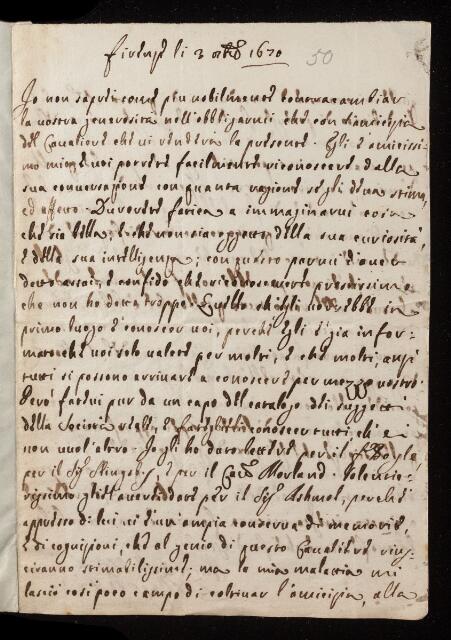 Firenze li 3 8tbre 1670
50
Io non saprei come più nobilmente contracambiar
la vostra generosità nell'obbligarmi che con l'amicizia
del Cavaliere che vi renderà la presente. Egli è amicissi-
mo mio, e voi potrete facilmente riconoscere dalla
sua conversazione con quanta ragione se gli deva stima,
ed affetto. Durerete fatica a immaginarvi cosa
che sia bella, e che non sia oggetto della sua curiosità,
e della sua intelligenza; con questo parmi d'aver
detto assai, e confido che
che non ho detto troppo. Quello ch'egli vorrebbe in
primo luogo è conoscer voi, perché Egli è già infor-
mato che voi solo valete per molti, e che molti, anzi
tutti si possono arrivare a conoscere per mezzo vostro.
Però fatevi pur da un capo del catalogo de i suggetti
della Società reale, e fateglieli conoscer tutti, ch'ei
non vuol altro. Io gli ho dato lettere per il Boyle,
per il Sig.r e per il Cav.r Morland. Volentie-
rissimo gliel'averei data per il Sig.r Ashmol, perché
appresso di lui vi è un'ampia conserva di memorie,
e di cognizioni, che al genio di questo Cavaliere rius-
ciranno stimabilissime; ma la mia malattia mi
lasciò così poco campo di coltivar l'amicizia, alla